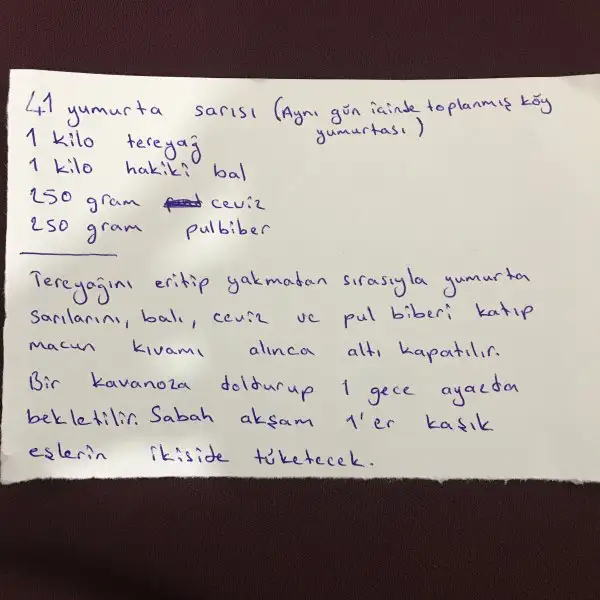 41 yumurta sarısı (Aynı gün içinde toplanmış köy
yumurtası)
1 kilo tereyağ
1 kilo hakiki bal
250 gram ceviz
250 gram pulbiber
Tereyağını eritip yakmadan sırasıyla yumurta
sarılarını, balı, ceviz ve pul biberi katıp
macun kıvamı alınca altı kapatılır.
Bir kavanoza doldurup 1 gece ayazda
bekletilir. Sabah akşam 1'er kaşık
eşlerin ikiside tüketecek.